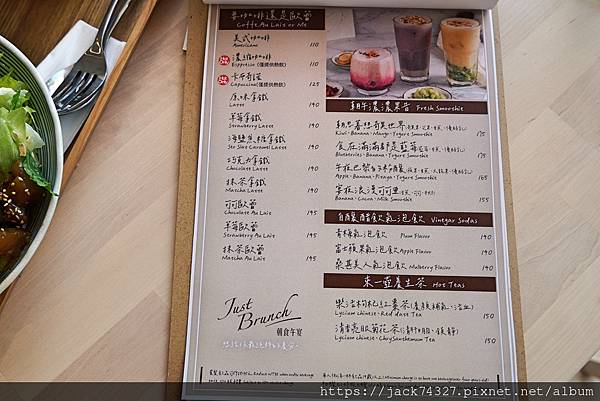 尋咖啡還是歐蕾
Coffe Au Lait or Me
美式咖啡
Americano 110
濃縮咖啡
Espresso (僅提供熱飲) 110
卡布奇諾
Capuccino (僅提供熱飲) 125
原味拿鐵
Latte 140
草莓拿鐵
Strawberry Latte 140
海鹽焦糖拿鐵
Sea Salt Caramel Latte 140
巧克力拿鐵
Chocolate Latte 140
抹茶拿鐵
Matcha Latte 140
可可歐蕾
Chocolate Au Lait 145
草莓歐蕾
Strawberry Au Lait 145
抹茶歐蕾
Matcha Au Lait 145
Just
Brunch
朝食午宴
朝午濃濃果昔 Fresh Smoothie
Kiwi、Banana、Mango、Yogurt Smoothie 175
食在滿滿都是藍莓
Blueberries、Banana、Yogure Smoothie 175
Apple、Banana、Yogure Smoothie 165
Banana、Cocoa、Milk Smoothie 155
自釀醋飲氣泡飲 Vinegar Sodas
青梅氣泡飲 Plum Flavor 140
富士蘋果氣泡飲 Apple Flavor 140
桑葚美人氣泡飲 Mulberry Flavor 140
來一壺養生茶 Hot Teas
樂活枸杞紅棗茶
Lycium chinense、Red date Tea 150
清香亮眼菊花茶
Lycium chinense、Chrysanthemum Tea 150
https://jack74327.pixnet.net/album